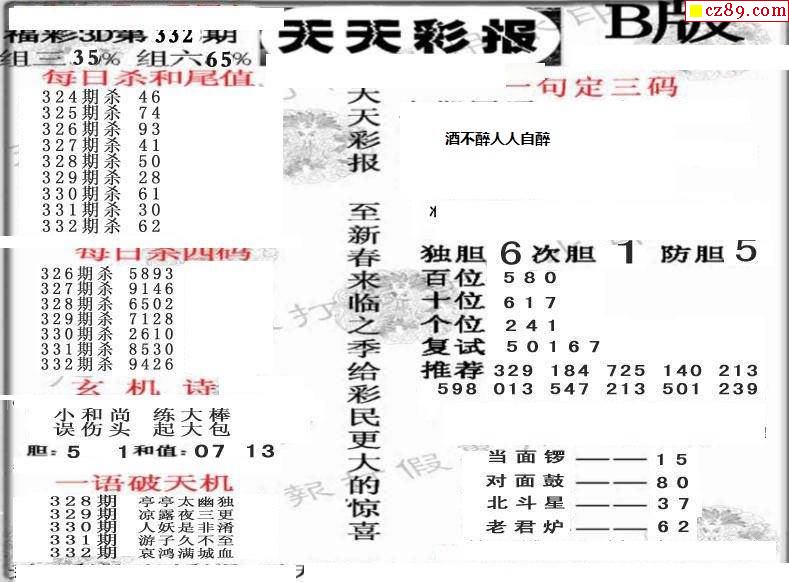 cz89.com
福彩3D第332期
组三35% 组六65%
天天彩报
B版
每日杀和尾值
324期杀 46
325期杀 74
326期杀 93
327期杀 41
328期杀 50
329期杀 28
330期杀 61
331期杀 30
332期杀 62
每日杀四码
326期杀 5893
327期杀 9146
328期杀 6502
329期杀 7128
330期杀 2610
331期杀 8530
332期杀 9426
玄机诗
小和尚 练大棒
误伤头 起大包
胆:5 1和值:07 13
一语破天机
328期 亭亭太幽独
329期 凉露夜三更
330期 人妖是非淆
331期 游子久不至
332期 哀鸿满城血
天天彩报 至新春来临之季给彩民更大的惊喜
一句定三码
酒不醉人人自醉
独胆6次胆1防胆5
百位 580
十位 617
个位 241
复试 50167
推荐 329 184 725 140 213
598 013 547 213 501 239
当面锣——15
对面鼓——80
北斗星——37
老君炉——62